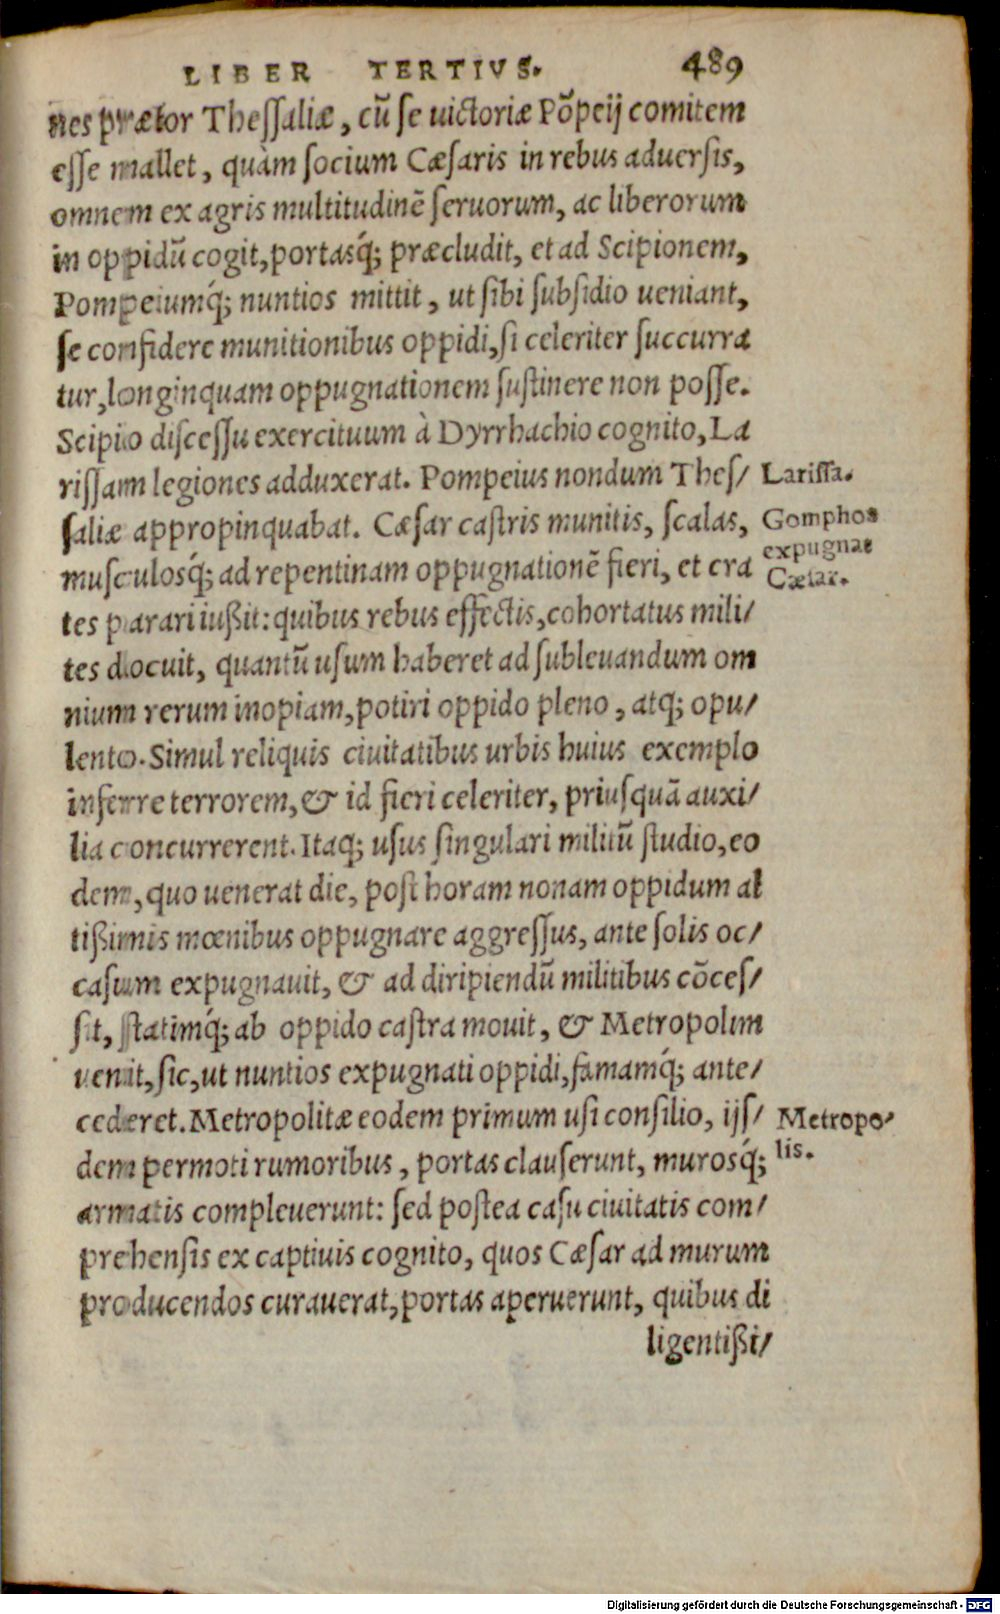 LIBER TERTIVS. 489
nes prætor Thessaliæ, cũ se uictoriæ Põpeij comitem
esse mallet, quàm socium Cæsaris in rebus aduersis,
omnem ex agris multitudinẽ seruorum, ac liberorum
in oppidũ cogit, portasq́; præcludit, et ad Scipionem,
Pompeiumq́; nuntios mittit, ut sibi subsidio ueniant,
se confidere munitionibus oppidi, si celeriter succurra
tur, longinquam oppugnationem sustinere non posse.
Scipio discessu exercituum à Dyrrhachio cognito, La
rissam legiones adduxerat. Pompeius nondum Thes/
Larissa.
saliæ appropinquabat. Cæsar castris munitis, scalas,
Gomphos
musculosq́; ad repentinam oppugnationẽ fieri, et cra
expugnat
Cæsar.
tes parari iußit: quibus rebus effectis, cohortatus mili/
tes docuit, quantũ usum haberet ad subleuandum om
nium rerum inopiam, potiri oppido pleno, atq; opu/
lento. Simul reliquis ciuitatibus urbis huius exemplo
inferre terrorem, & id fieri celeriter, priusquã auxi/
lia concurrerent. Itaq; usus singulari militũ studio, eo
dem, quo uenerat die, post horam nonam oppidum al
tißimis mœnibus oppugnare aggressus, ante solis oc/
casum expugnauit, & ad diripiendũ militibus cõces/
sit, statimq́; ab oppido castra mouit, & Metropolim
venit, sic, ut nuntios expugnati oppidi, famamq́; ante/
cederet. Metropolitæ eodem primum usi consilio, ijs/
Metropo/
lis.
dem permoti rumoribus, portas clauserunt, murosq́;
armatis compleuerunt: sed postea casu ciuitatis com/
prehensis ex captiuis cognito, quos Cæsar ad murum
producendos curauerat, portas aperuerunt, quibus di
ligentißi/
Digitalisierung gefördert durch die Deutsche Forschungsgemeinschaft - DFG